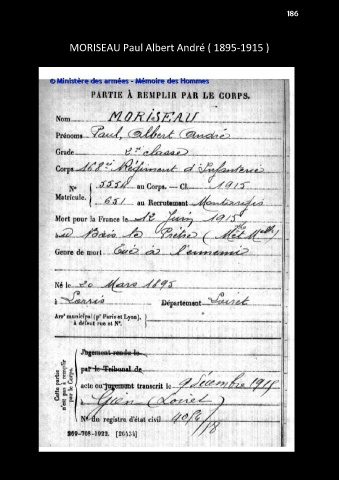 186
MORISEAU Paul Albert André ( 1895-1915 )
© Ministère des armées - Mémoire des Hommes
PARTIE À REMPLIR PAR LE CORPS.
Nom MORISEAU
Prénoms Paul, Albert André
Grade 2e classe
Corps 168e Régiment d'Infanterie
N° Matricule. 5554 au Corps. — Cl. 1915
651 au Recrutement Montargis
Mort pour la France le 12 Juin 1915
à Bois le Prêtre (Mthe Mlle)
Genre de mort Tué à l'ennemi
Né le 20 Mars 1895
à Lorris Département Loiret
Arr' municipal (p' Paris et Lyon),
à défaut rue et N°.
Cette partie n'est pas à remplir par le Corps.
Jugement rendu le
par le Tribunal de
acte ou jugement transcrit le 9 décembre 1918
à Gien (Loiret)
N° du registre d'état civil
269-708-1922. [26434]